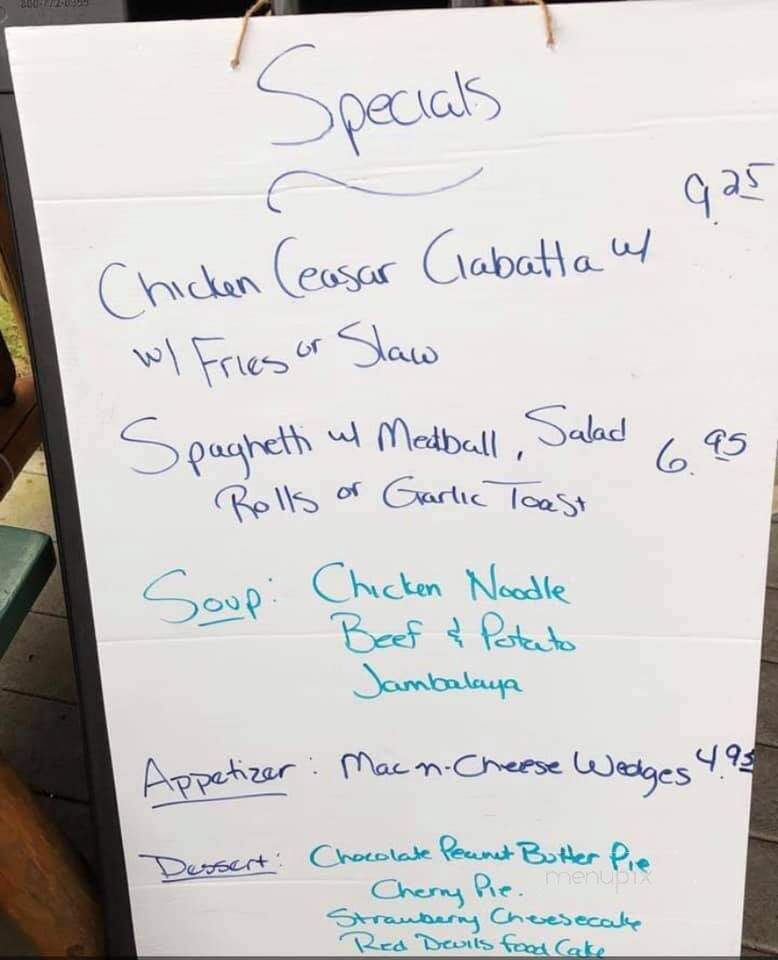 800-772-0355
Specials
9.25
Chicken Ceasar Ciabatta w/
w/ Fries or Slaw
Spaghetti w/ Meatball, Salad 6.95
Rolls or Garlic Toast
Soup: Chicken Noodle
Beef & Potato
Jambalaya
Appetizer: Mac-n-Cheese Wedges 4.95
Dessert: Chocolate Peanut Butter Pie
menupix
Cherry Pie.
Strawberry Cheesecake
Red Devils food Cake